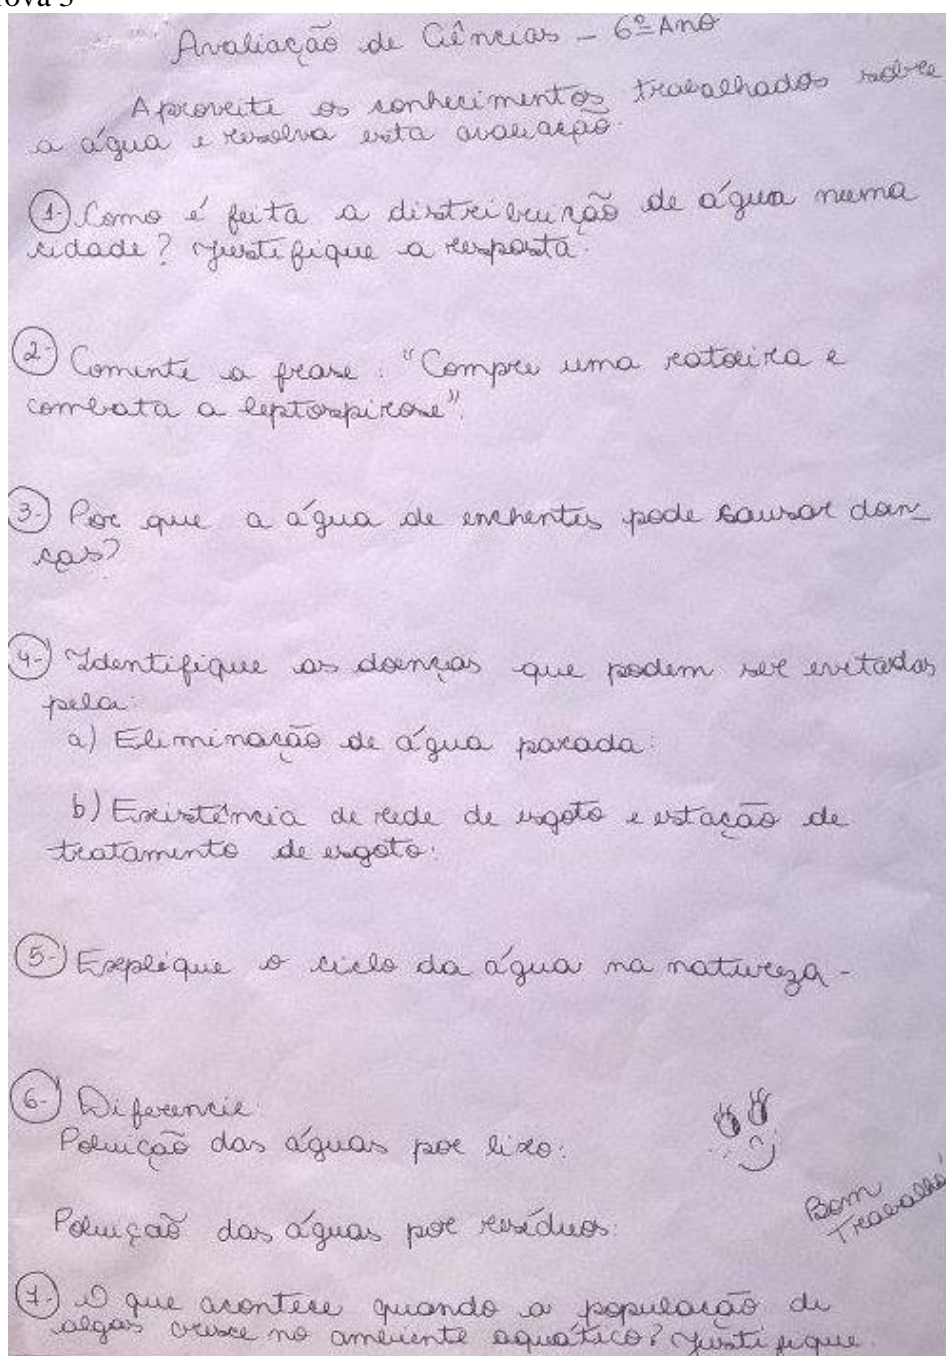 ova 3
Avaliação de Ciências - 6º Ano
Aproveite os conhecimentos trabalhados sobre
a água e resolva esta avaliação.
1-) Como é feita a distribuição de água numa
cidade? Justifique a resposta.
2-) Comente a frase: "Compre uma ratoeira e
combata a leptospirose".
3-) Por que a água de enchentes pode causar dan_
ças?
4-) Identifique as doenças que podem ser evitadas
pela:
a) Eliminação de água parada:
b) Existência de rede de esgoto e estação de
tratamento de esgoto:
5-) Explique o ciclo da água na natureza -
6-) Diferencie:
Poluição das águas por lixo:
Poluição das águas por resíduos:
Bom
Trabalho!
7-) O que acontece quando a população de
algas cresce no ambiente aquático? Justifique.